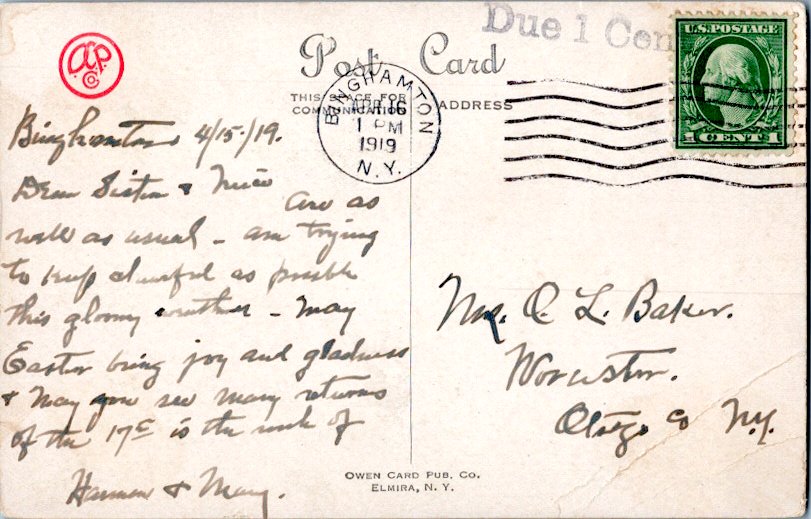 Due 1 Cen
U.S. POSTAGE
1 CENT 1
Post Card
THIS SPACE FOR
COMMUNICATION
ADDRESS
BINGHAMTON
APR 16
1 PM
1919
N.Y.
Binghamton 4/15/19.
Dear Sister & Niece
are as
well as usual - am trying
to keep cheerful as possible
this gloomy weather - May
Easter bring joy and gladness
& may you see many returns
of the 17th is the wish of
Harmon & Mary.
Mrs. L. Baker.
Worcester.
Otsego Co N.Y.
OWEN CARD PUB. CO.
ELMIRA, N. Y.